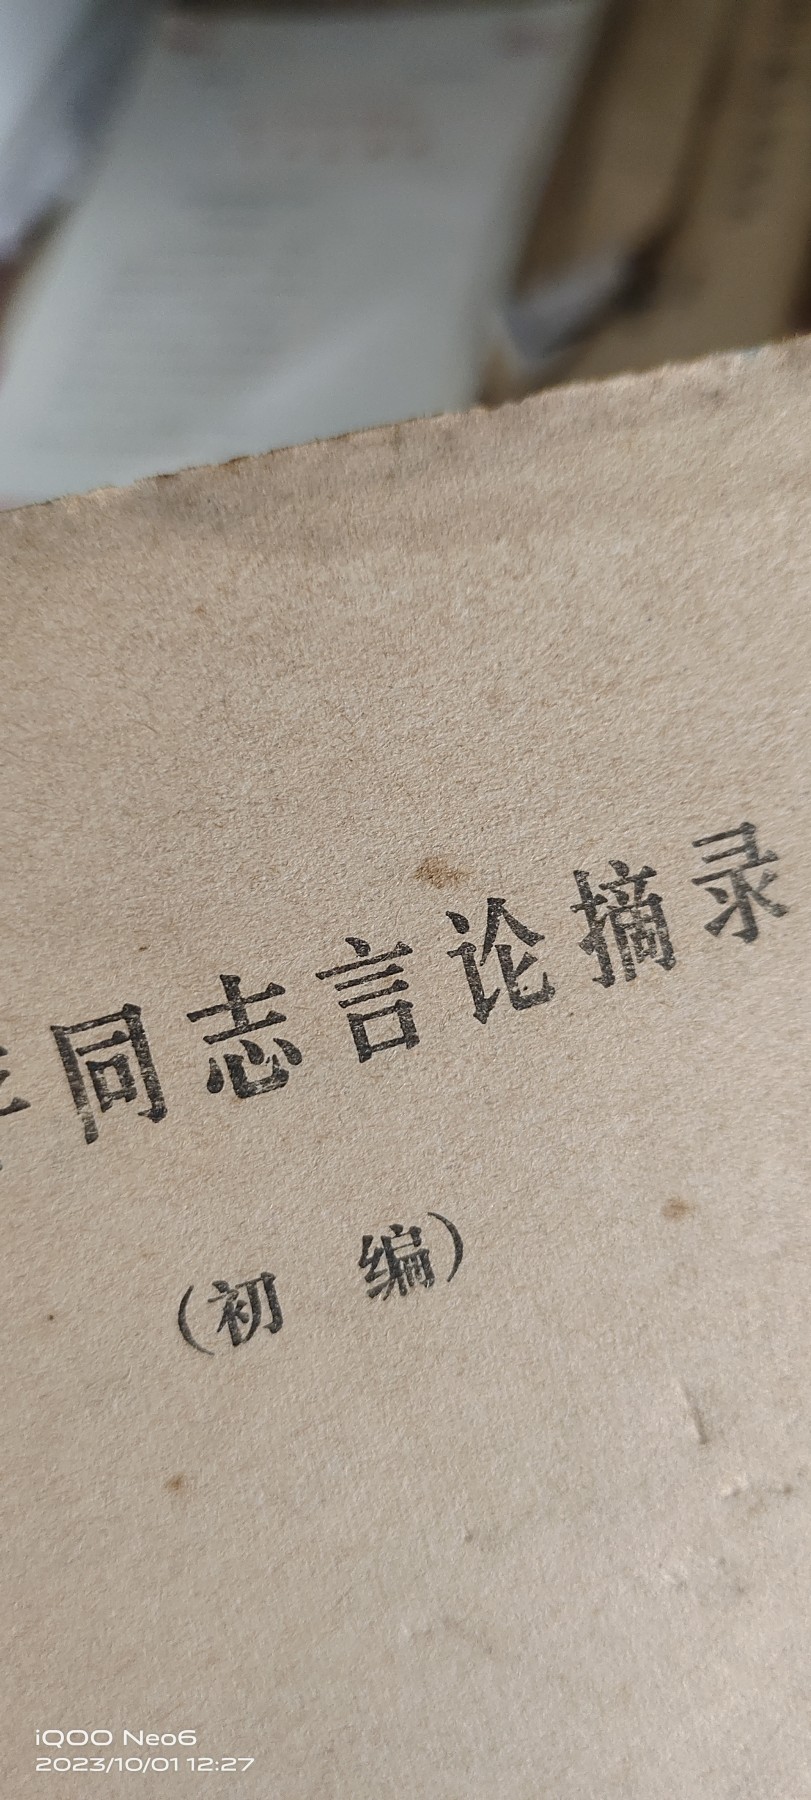 同志言论摘录
（初 编）
iQOO Neo6
2023/10/01 12:27